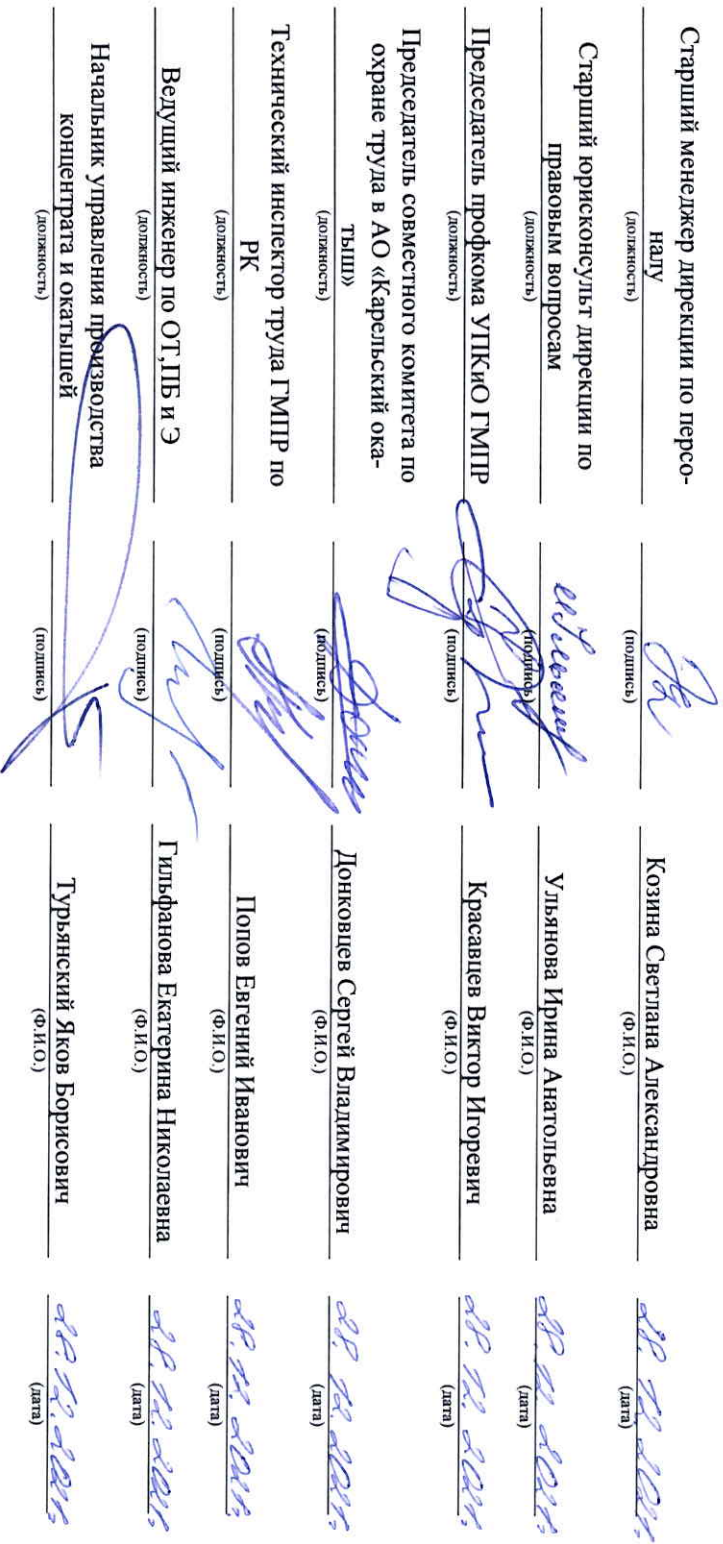 Старший менеджер дирекции по персо-
налу
(должность) (подпись) Козина Светлана Александровна (Ф.И.О.) 28.12.2021г. (дата)
Старший юрисконсульт дирекции по
правовым вопросам
(должность) (подпись) Ульянова Ирина Анатольевна (Ф.И.О.) 28.12.2021г. (дата)
Председатель профкома УПКиО ГМПР
(должность) (подпись) Красавцев Виктор Игоревич (Ф.И.О.) 28.12.2021г. (дата)
Председатель совместного комитета по
охране труда в АО «Карельский ока-
тыш»
(должность) (подпись) Донковцев Сергей Владимирович (Ф.И.О.) 28.12.2021г. (дата)
Технический инспектор труда ГМПР по
РК
(должность) (подпись) Попов Евгений Иванович (Ф.И.О.) 28.12.2021г. (дата)
Ведущий инженер по ОТ,ПБ и Э
(должность) (подпись) Гильфанова Екатерина Николаевна (Ф.И.О.) 28.12.2021г. (дата)
Начальник управления производства
концентрата и окатышей
(должность) (подпись) Турьянский Яков Борисович (Ф.И.О.) 28.12.2021г. (дата)